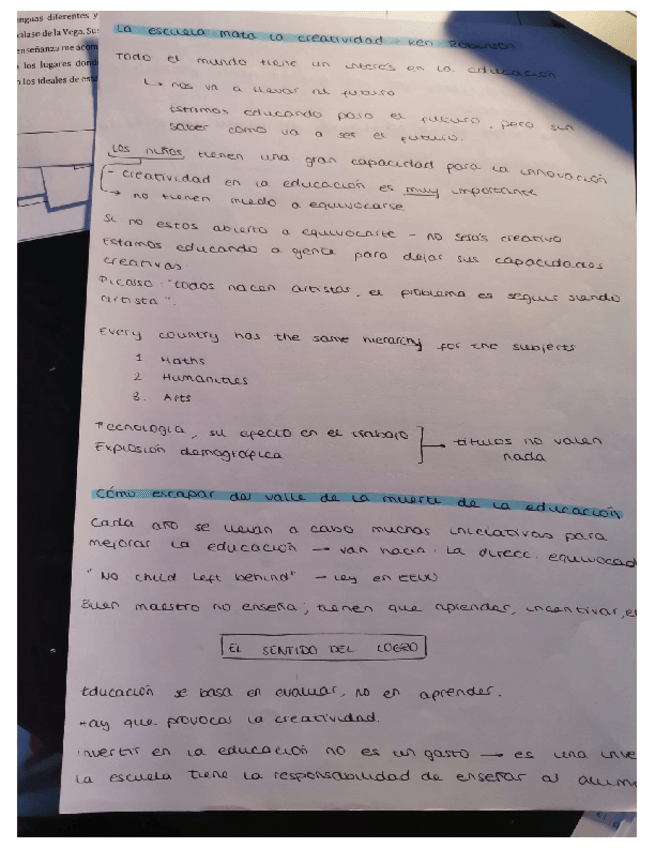 nguas diferentes y
alase de la Vega. Su
enseñanza me acom
los lugares dond
los ideales de est
La escuela mata la creatividad - Ken Robinson
Todo el mundo tiene un interés en la educación
↳ nos va a llevar al futuro
Estamos educando para el futuro, pero sin
saber cómo va a ser el futuro.
Los niños tienen una gran capacidad para la innovación
- creatividad en la educación es muy importante
→ no tienen miedo a equivocarse
Si no estás abierto a equivocarte - no serás creativo
Estamos educando a gente para dejar sus capacidades
creativas.
Picasso: "todos nacen artistas, el problema es seguir siendo
artista".
Every country has the same hierarchy for the subjects
1 Maths
2 Humanities
3. Arts
Tecnología, su efecto en el trabajo
Explosión demográfica
→ títulos no valen
nada
Cómo escapar del valle de la muerte de la educación
Cada año se llevan a cabo muchas iniciativas para
mejorar la educación → van hacia la direcc. equivocad
"No child left behind" - ley en EEUU
Buen maestro no enseña; tienen que aprender, incentivar, e
EL SENTIDO DEL LOGRO
Educación se basa en evaluar, no en aprender.
Hay que provocar la creatividad.
Invertir en la educación no es un gasto → es una inve
La escuela tiene la responsabilidad de enseñar al alum